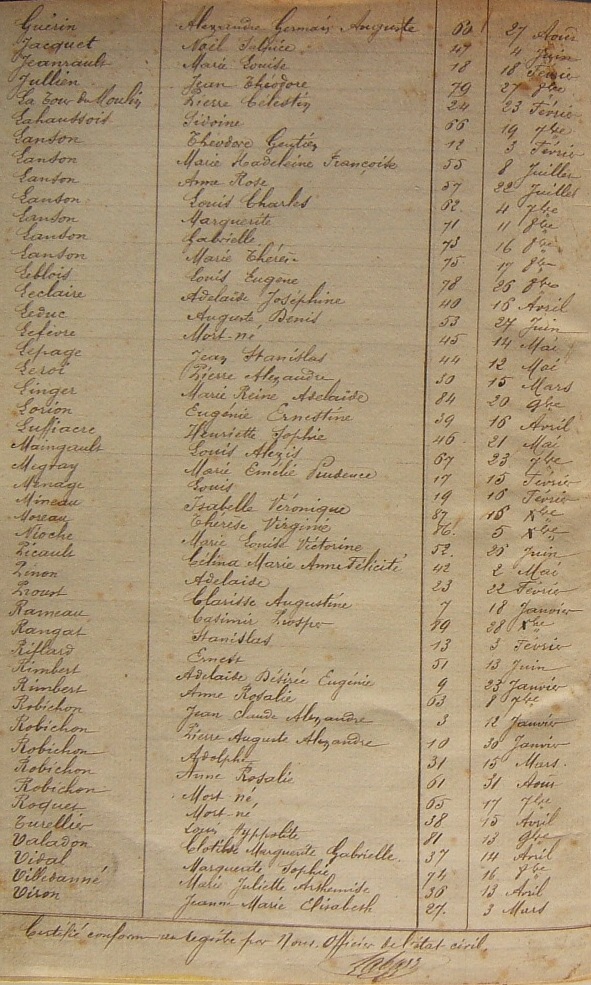 Guérin Alexandre Germain Auguste 60 27 Août
Jacquet Noël Sulpice 47 4 Juin
Jeanrault Marie Louise 18 18 Février
Jullien Jean Théodore 79 27 8bre
La Cour du Moulin Pierre Célestin 24 23 Février
Lahaussois Sidoine 66 19 7bre
Lanson Théodore Gentien 12 3 Février
Lanson Marie Madeleine Françoise 55 8 Juillet
Lanson Anne Rose 57 22 Juillet
Lanson Louis Charles 62 4 7bre
Lanson Marguerite 71 11 8bre
Lanson Gabrielle 73 16 8bre
Lanson Marie Thérèse 75 17 8bre
Leblois Louis Eugène 78 26 8bre
Leclaire Adelaïde Joséphine 40 16 Avril
Leduc Auguste Denis 53 27 Juin
Lefèvre Mort-né 45 14 Mai
Lepage Jean Stanislas 44 12 Mai
Leroi Pierre Alexandre 30 15 Mars
Linger Marie Reine Adelaïde 84 20 9bre
Lorion Eugénie Ernestine 39 16 Avril
Lussiacre Henriette Sophie 46 21 Mai
Maingault Louis Alexis 67 23 7bre
Megray Marie Emélie Prudence 17 15 Février
Ménage Louis 19 16 Février
Mineau Isabelle Véronique 87 16 Xbre
Moreau Thérèse Virginie 86. 5 Xbre
Nioche Marie Louise Victorine 52. 26 Juin
Picault Célina Marie Anne Félicité 42 2 Mai
Pinon Adelaise 23 22 Février
Proust Clarisse Augustine 7 18 Janvier
Rameau Casimir Prosper 89 28 Xbre
Rangat Stanislas 13 3 Février
Riffard Ernest 51 13 Juin
Rimbert Adelaïde Désirée Eugénie 9 23 Janvier
Rimbert Anne Rosalie 63 8 7bre
Robichon Jean Claude Alexandre 3 12 Janvier
Robichon Pierre Auguste Alexandre 10 30 Janvier
Robichon Adolphe 31 15 Mars.
Robichon Anne Rosalie 61 31 Août
Robichon Mort né 65 17 7bre
Roquet Mort né 38 15 Avril
Turellier Louis Hyppolite 81 13 9bre
Valadon Clotilde Marguerite Gabrielle. 37 14 Avril
Vidal Marguerite Sophie 74 16 8bre
Villedanné Marie Juliette Arthemise 36 13 Avril
Viron Jeanne Marie Elisabeth 27. 3 Mars
Certifié conforme au registre par Nous. Officier de l'état civil